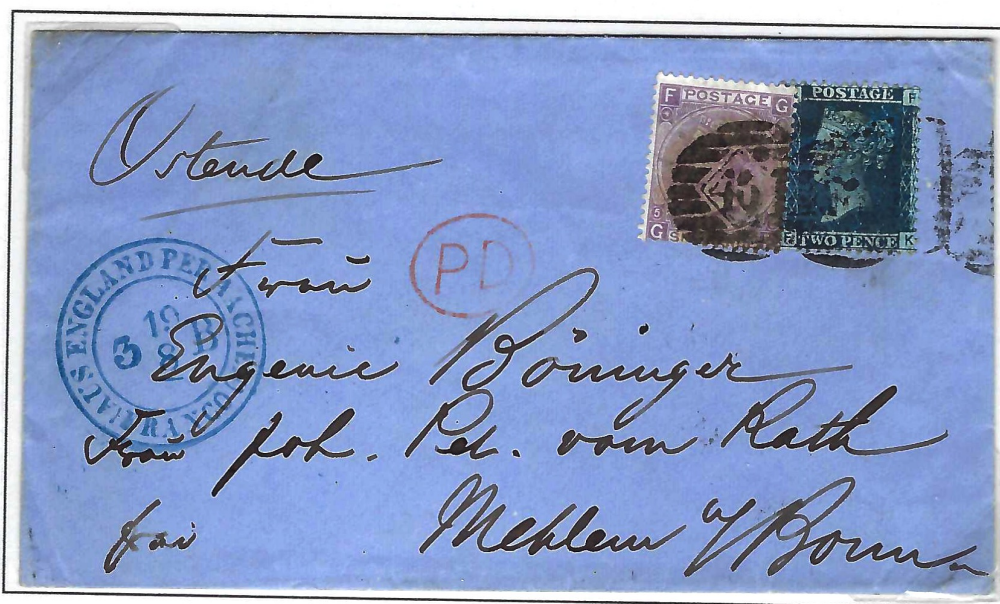 Ostende
F POSTAGE G
5
G SIX PENCE
POSTAGE F
F TWO PENCE K
PD
AUS ENGLAND PER AACHEN
19
3 8 B
FRANCO
Frau
Eugenie Böninger
Frau Joh. Pet. vom Rath
frei
Mehlem a/ Bonn